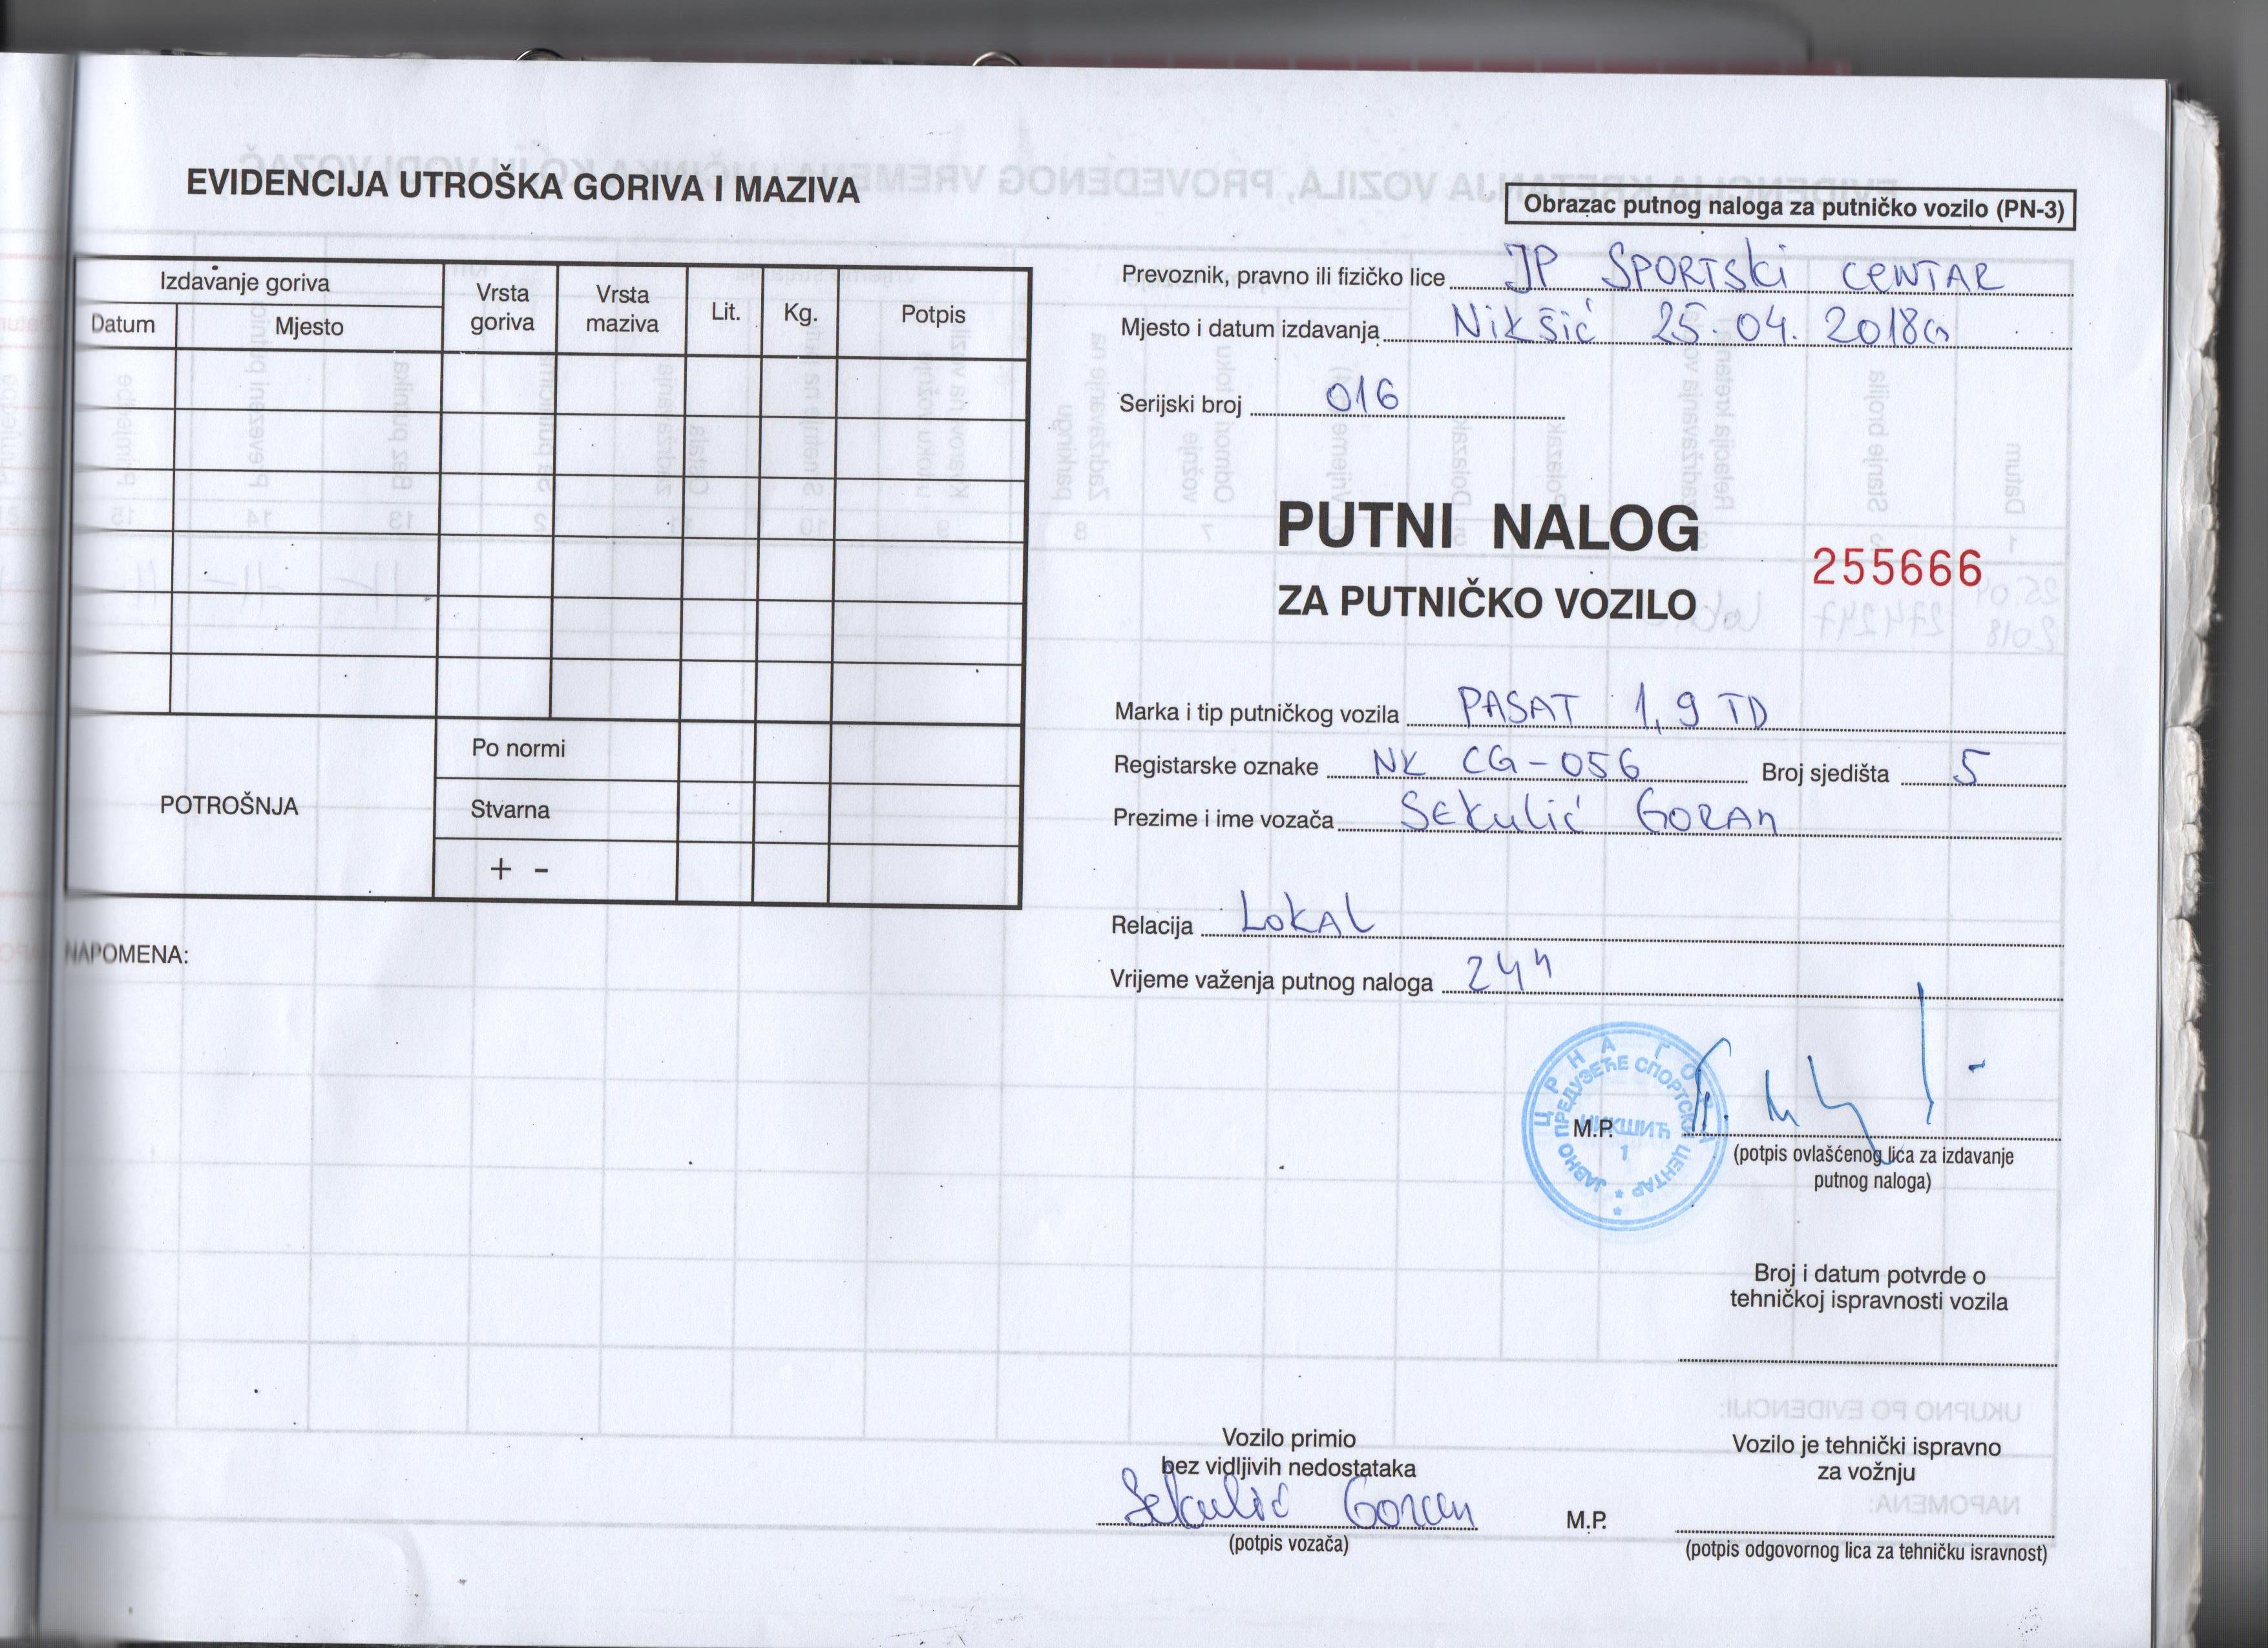 EVIDENCIJA UTROŠKA GORIVA I MAZIVA
Izdavanje goriva
Datum
Mjesto
Vrsta goriva
Vrsta maziva
Lit.
Kg.
Potpis
POTROŠNJA
Po normi
Stvarna
+ -
NAPOMENA:
Obrazac putnog naloga za putničko vozilo (PN-3)
Prevoznik, pravno ili fizičko lice JP SPORTSKI CENTAR
Mjesto i datum izdavanja Nikšić 25.04.2018
Serijski broj 016
PUTNI NALOG
255666
ZA PUTNIČKO VOZILO
Marka i tip putničkog vozila PASAT 1,9 TD
Registarske oznake NK CG-056 Broj sjedišta 5
Prezime i ime vozača Sekulić Goran
Relacija LOKAL
Vrijeme važenja putnog naloga 24h
ЦРНА ГОРА
ЈАВНО ПРЕДУЗЕЋЕ СПОРТСКИ ЦЕНТАР
НИКШИЋ
1
M.P.
(potpis ovlašćenog lica za izdavanje
putnog naloga)
Broj i datum potvrde o
tehničkoj ispravnosti vozila
Vozilo primio
bez vidljivih nedostataka
Sekulić Goran
(potpis vozača)
M.P.
Vozilo je tehnički ispravno
za vožnju
(potpis odgovornog lica za tehničku isravnost)